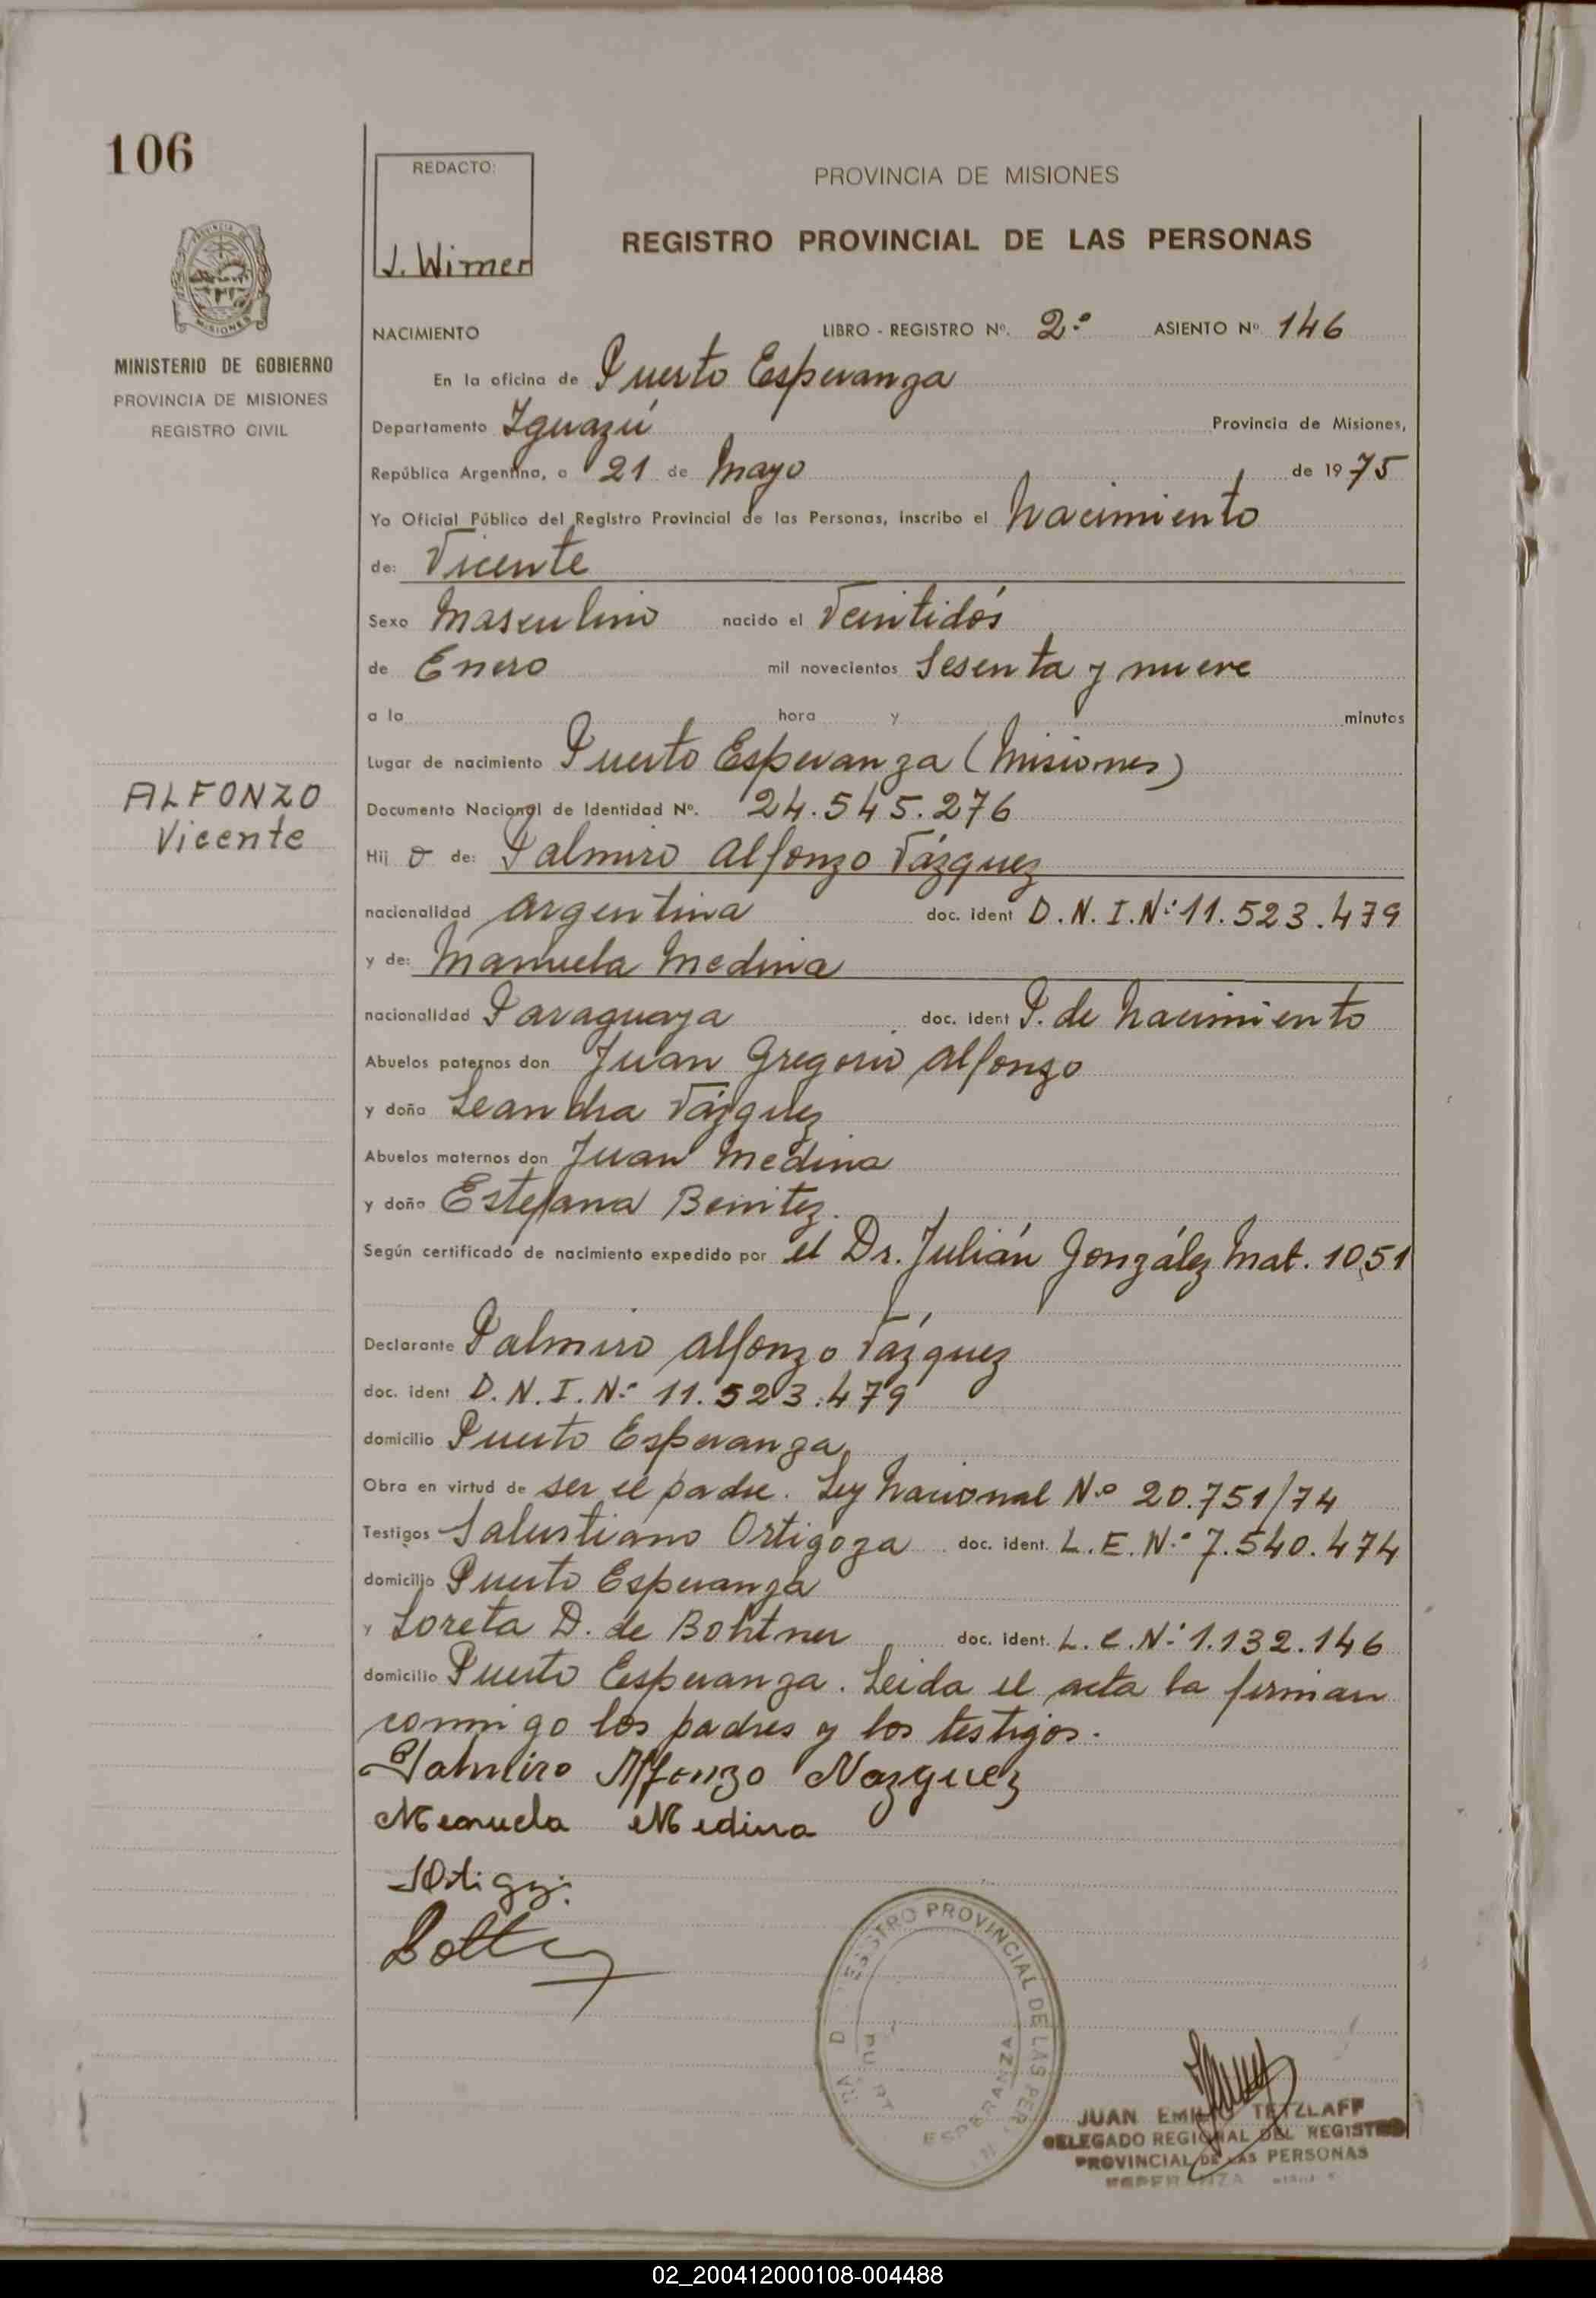 106
REDACTO:
J. Wimer
PROVINCIA DE MISIONES
REGISTRO PROVINCIAL DE LAS PERSONAS
MINISTERIO DE GOBIERNO
PROVINCIA DE MISIONES
REGISTRO CIVIL
NACIMIENTO LIBRO - REGISTRO Nº. 2º ASIENTO Nº. 146
En la oficina de Puerto Esperanza
Departamento Iguazú Provincia de Misiones,
República Argentina, a 21 de Mayo de 1975
Yo Oficial Público del Registro Provincial de las Personas, inscribo el Nacimiento
de: Vicente
Sexo Masculino nacido el Veintidós
de Enero mil novecientos Sesenta y nueve
a la hora y minutos
Lugar de nacimiento Puerto Esperanza (Misiones)
ALFONZO
Vicente
Documento Nacional de Identidad Nº. 24.545.276
Hij o de: Palmiro Alfonzo Vázquez
nacionalidad Argentina doc. ident D.N.I.Nº 11.523.479
y de: Manuela Medina
nacionalidad Paraguaya doc. ident P. de Nacimiento
Abuelos paternos don Juan Gregorio Alfonzo
y doña Leandra Vázquez
Abuelos maternos don Juan Medina
y doña Estefana Benitez.
Según certificado de nacimiento expedido por el Dr. Julián González Mat. 1051
Declarante Palmiro Alfonzo Vázquez
doc. ident D.N.I.Nº 11.523.479
domicilio Puerto Esperanza
Obra en virtud de ser el padre. Ley Nacional Nº 20.751/74
Testigos Salustiano Ortigoza doc. ident. L.E.Nº 7.540.474
domicilio Puerto Esperanza
y Loreta D. de Bohtner doc. ident. L.C.Nº 1.132.146
domicilio Puerto Esperanza. Leida el acta la firman
conmigo los padres y los testigos.
Palmiro Alfonzo Vazquez
Manuela Medina
REGISTRO PROVINCIAL DE LAS PER
ESPERANZA
JUAN EMILIO TETZLAFF
DELEGADO REGIONAL DEL REGISTRO
PROVINCIAL DE LAS PERSONAS
ESPERANZA
02_200412000108-004488